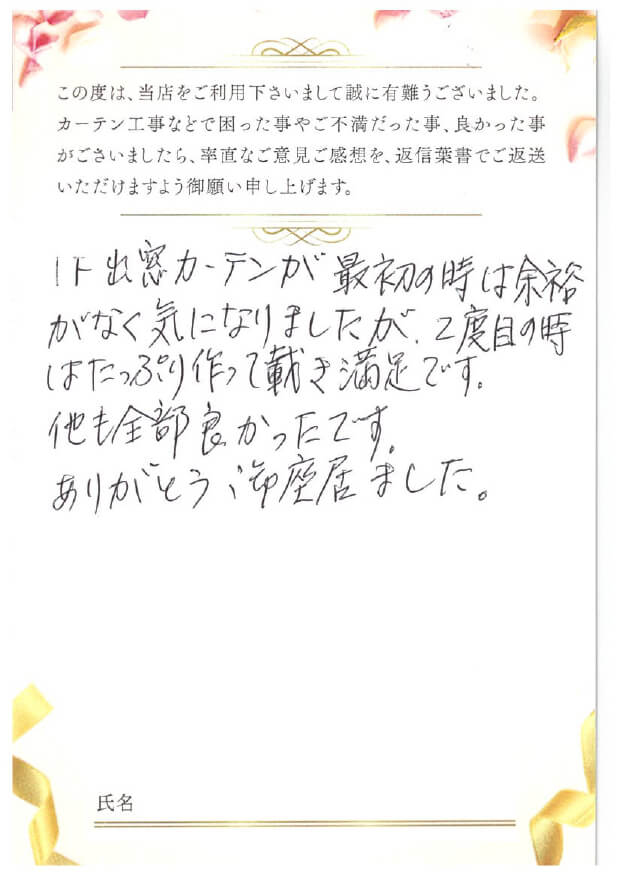 この度は、当店をご利用下さいまして誠に有難うございました。
カーテン工事などで困った事やご不満だった事、良かった事
がございましたら、率直なご意見ご感想を、返信葉書でご返送
いただけますよう御願い申し上げます。
1F出窓カーテンが最初の時は余裕
がなく気になりましたが、2度目の時
はたっぷり作って載き満足です。
他も全部良かったです。
ありがとう御座居ました。
氏名